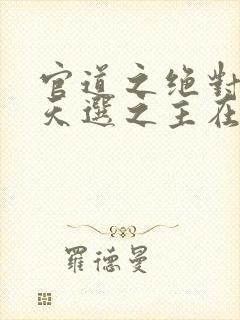 官道之绝對
天選之主在
羅德曼